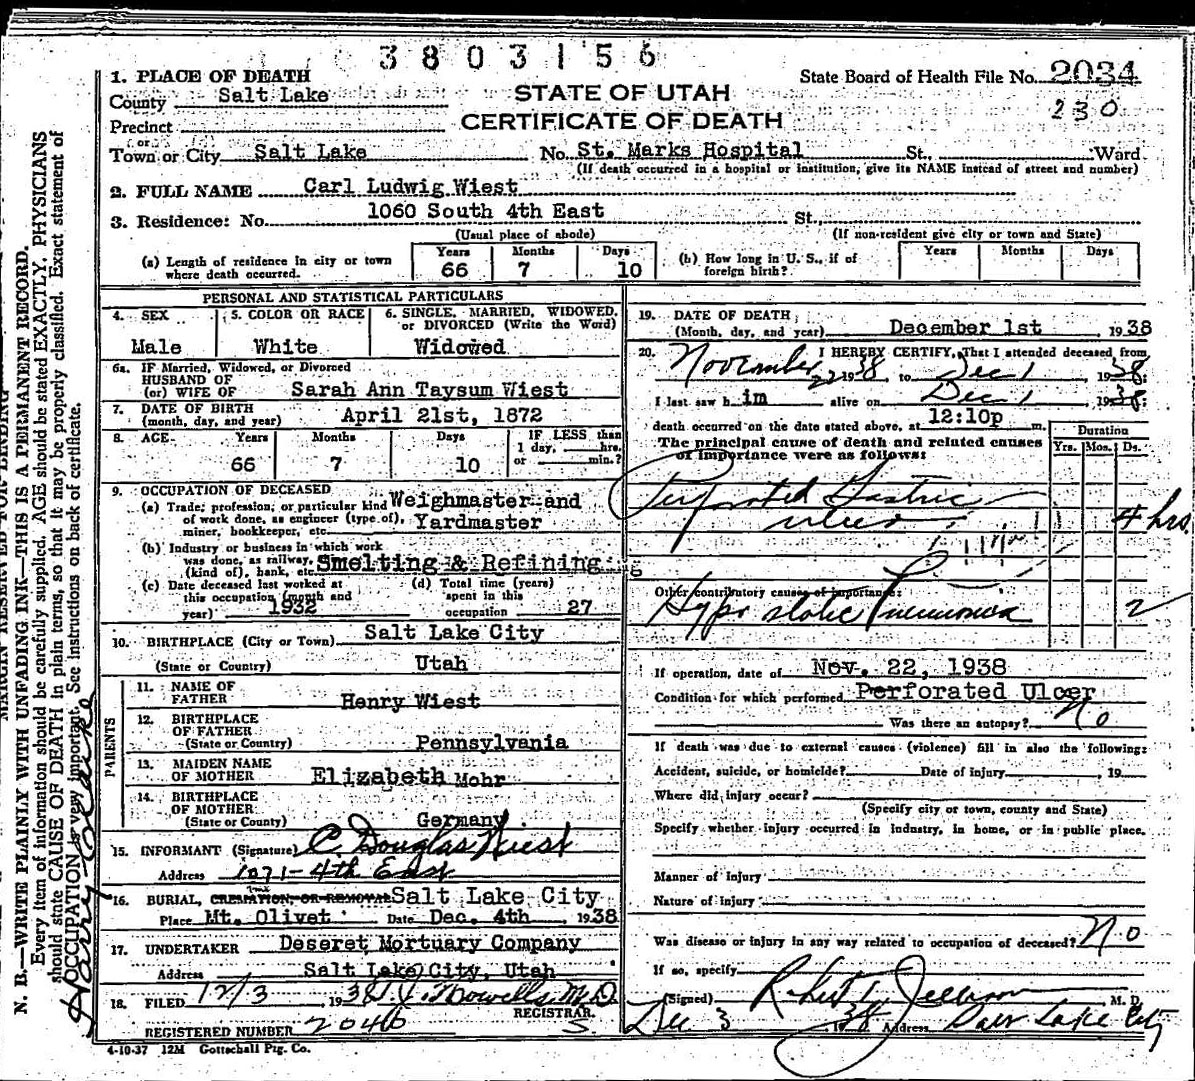 3803156
1. PLACE OF DEATH
State Board of Health File No. 2034
County Salt Lake
STATE OF UTAH
230
Precinct
CERTIFICATE OF DEATH
or
Town or City Salt Lake No. St. Marks Hospital St., Ward
(If death occurred in a hospital or institution, give its NAME instead of street and number)
2. FULL NAME Carl Ludwig Wiest
3. Residence: No. 1060 South 4th East St.,
(Usual place of abode) (If non-resident give city or town and State)
(a) Length of residence in city or town where death occurred. Years 66 Months 7 Days 10
(b) How long in U. S., if of foreign birth? Years Months Days
PERSONAL AND STATISTICAL PARTICULARS
4. SEX Male
5. COLOR OR RACE White
6. SINGLE, MARRIED, WIDOWED, or DIVORCED (Write the Word) Widowed
6a. IF Married, Widowed, or Divorced
HUSBAND OF
(or) WIFE OF Sarah Ann Taysum Wiest
7. DATE OF BIRTH
(month, day, and year) April 21st, 1872
8. AGE Years 66 Months 7 Days 10 IF LESS than 1 day, hrs. or min.?
9. OCCUPATION OF DECEASED
(a) Trade, profession, or particular kind of work done, as engineer (type of), miner, bookkeeper, etc. Weighmaster and Yardmaster
(b) Industry or business in which work was done, as railway, (kind of), bank, etc. Smelting & Refining
(c) Date deceased last worked at this occupation (month and year) 1932
(d) Total time (years) spent in this occupation 27
10. BIRTHPLACE (City or Town) Salt Lake City
(State or Country) Utah
PARENTS
11. NAME OF FATHER Henry Wiest
12. BIRTHPLACE OF FATHER (State or Country) Pennsylvania
13. MAIDEN NAME OF MOTHER Elizabeth Mohr
14. BIRTHPLACE OF MOTHER (State or Country) Germany
15. INFORMANT (Signature) C. Douglas Wiest
Address 1071-4th East
16. BURIAL, CREMATION, OR REMOVAL Salt Lake City
Place Mt. Olivet Date Dec. 4th, 1938
17. UNDERTAKER Deseret Mortuary Company
Address Salt Lake City, Utah
18. FILED 12/3, 1938 M.D.
REGISTRAR.
REGISTERED NUMBER 2046
4-10-37 12M Gottschall Ptg. Co.
19. DATE OF DEATH
(Month, day, and year) December 1st 1938
20. I HEREBY CERTIFY, That I attended deceased from
November 22 1938, to Dec 1, 1938.
I last saw h im alive on Dec 1, 1938.
death occurred on the date stated above, at 12:10p m.
The principal cause of death and related causes of importance were as follows:
Duration
Yrs. Mos. Ds.
Perforated Gastric
ulcer 4 hrs.
Other contributory causes of importance:
Hypostatic Pneumonia 2
If operation, date of Nov. 22, 1938
Condition for which performed Perforated Ulcer
Was there an autopsy? No
If death was due to external causes (violence) fill in also the following:
Accident, suicide, or homicide? Date of injury, 19
Where did injury occur?
(Specify city or town, county and State)
Specify whether injury occurred in industry, in home, or in public place.
Manner of injury
Nature of injury
Was disease or injury in any way related to occupation of deceased? No
If so, specify
(Signed) Robert M. D.
Dec 3 1938 Address Salt Lake City
N. B.—WRITE PLAINLY WITH UNFADING INK—THIS IS A PERMANENT RECORD.
Every item of information should be carefully supplied. AGE should be stated EXACTLY. PHYSICIANS
should state CAUSE OF DEATH in plain terms, so that it may be properly classified. Exact statement of
OCCUPATION is very important. See instructions on back of certificate.